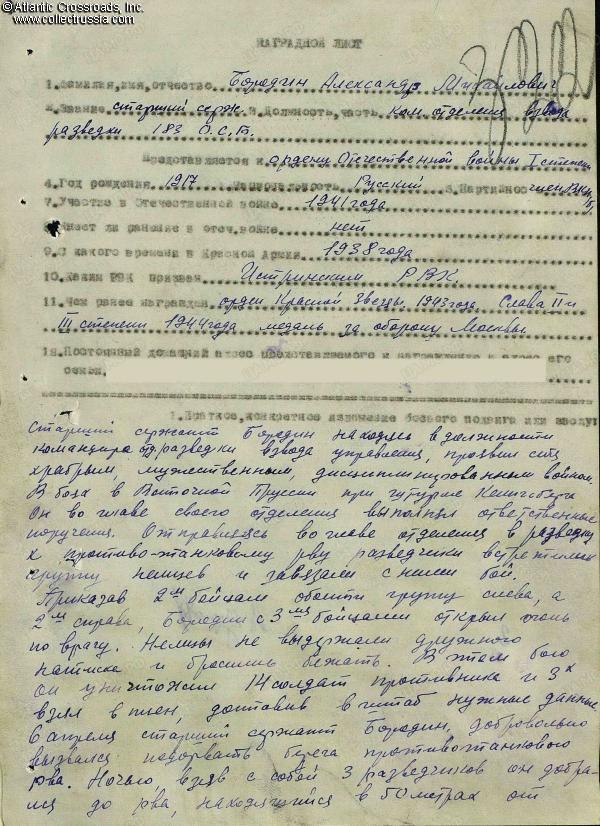 © Atlantic Crossroads, Inc.
www.collectrussia.com
НАГРАДНОЙ ЛИСТ
1.Фамилия,имя,отчество Бородин Александр Михайлович
2.Звание старший серж. 3.Должность,часть Ком. отделения взвода
разведки 183 О.С.Б.
Представляется к ордену Отечественной войны I степени
4.Год рождения 1917 5.Национальность Русский 6.Партийность
7.Участие в Отечественной войне 1941 года
8.Имеет ли ранение в отеч.войне нет
9.С какого времени в Красной Армии 1938 года
10.Каким РВК призван Истринским РВК.
11.Чем ранее награжден орден Красной Звезды, 1943 года, Слава II и
III степени 1944 года медаль за оборону Москвы
12.Постоянный домашний адрес представляемого к награждению и адрес его
семьи.
1.Краткое,конкретное изложение боевого подвига или заслуг
Старший сержант Бородин находясь в должности
командира отд. разведки взвода управления, проявил себя
храбрым, мужественным, дисциплинированным воином.
В боях в Восточной Пруссии при штурме Кенигсберга
Он во главе своего отделения выполнял ответственные
поручения. Отправляясь во главе отделения в разведку
к противо-танковому рву разведчики встретили
группу немцев и завязали с ними бой.
Приказав 2ум бойцам обойти группу слева, а
2ум справа, Бородин с 3мя бойцами открыл огонь
по врагу. Немцы не выдержали дружного
натиска и бросились бежать. В этом бою
он уничтожил 14 солдат противника и 3х
взял в плен, доставив в штаб нужные данные
6 апреля старший сержант Бородин, добровольно
вызвался подорвать берега противотанкового
рва. Ночью взяв с собой 3 разведчиков он добра-
лся до рва, находящийся в 50 метрах от